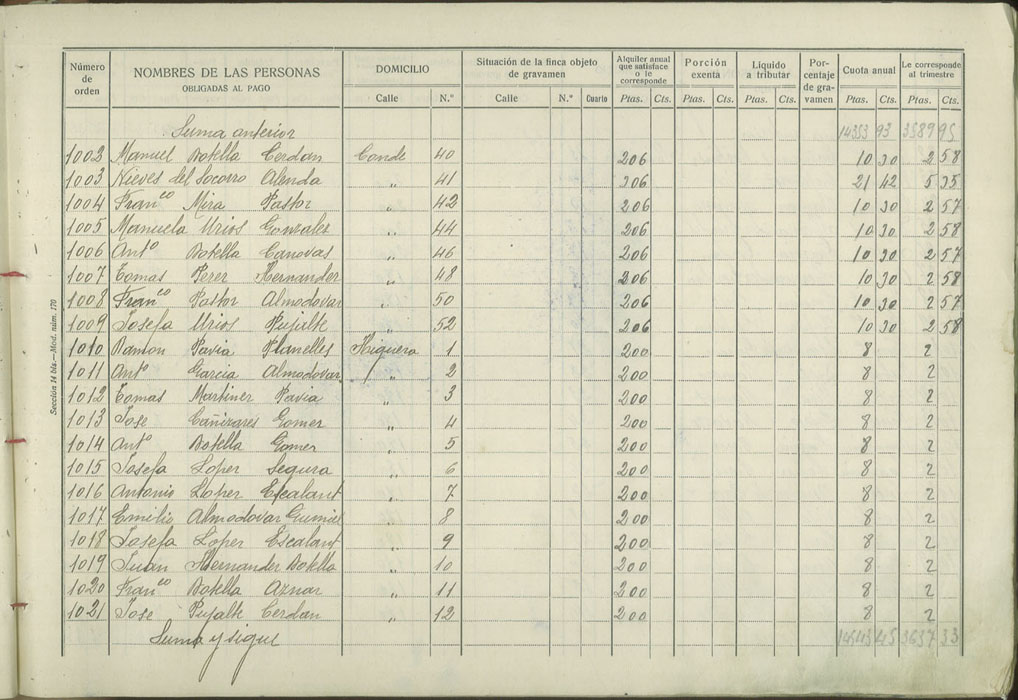 Número de orden NOMBRES DE LAS PERSONAS OBLIGADAS AL PAGO DOMICILIO Situación de la finca objeto de gravamen Alquiler anual que satisface o le corresponde Porción exenta Líquido a tributar Porcentaje de gravamen Cuota anual Le corresponde al trimestre
Calle N.º Calle N.º Cuarto Ptas. Cts. Ptas. Cts. Ptas. Cts. Ptas. Cts. Ptas. Cts.
Suma anterior 14353 93 3589 95
1002 Manuel Botella Cerdan Conde 40 206 10 30 2 58
1003 Nieves del Socorro Alenda " 41 306 21 42 5 35
1004 Franco Mira Pastor " 42 206 10 30 2 57
1005 Manuela Urios Gonzalez " 44 206 10 30 2 58
1006 Anto Botella Canovas " 46 206 10 30 2 57
1007 Tomas Perez Hernandez " 48 206 10 30 2 58
1008 Franco Pastor Almodovar " 50 206 10 30 2 57
1009 Josefa Urios Pujalte " 52 206 10 30 2 58
1010 Ramon Pavia Planelles Higuera 1 200 8 2
1011 Anto Garcia Almodovar " 2 200 8 2
1012 Tomas Martinez Pavia " 3 200 8 2
1013 Jose Cañizares Gomez " 4 200 8 2
1014 Anto Botella Gomez " 5 200 8 2
1015 Josefa Lopez Segura " 6 200 8 2
1016 Antonio Lopez Escalant " 7 200 8 2
1017 Emilio Almodovar Gumiel " 8 200 8 2
1018 Josefa Lopez Escalant " 9 200 8 2
1019 Juan Hernandez Botella " 10 200 8 2
1020 Franco Botella Aznar " 11 200 8 2
1021 Jose Pujalte Cerdan " 12 200 8 2
Suma y sigue 45 3637 33
Sección 14 bis.—Mod. núm. 170